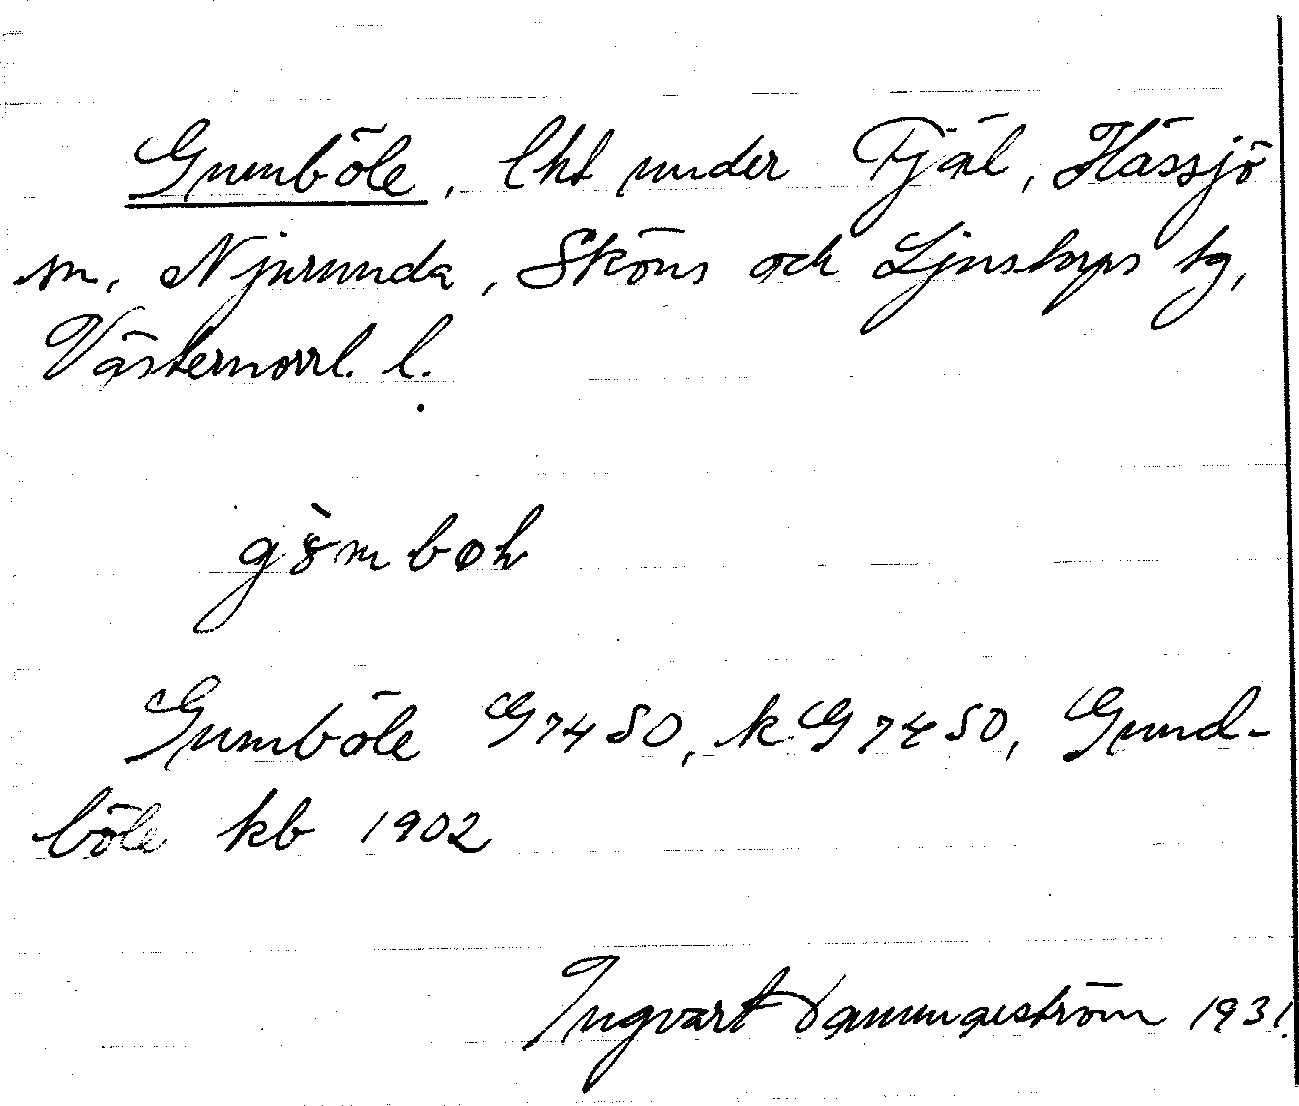 Gumböle, lht under Fjäl, Hässjö
sn, Njurunda, Sköns och Ljustorps tg,
Västernorrl. l.
Gumböle G7450, kG7450, Gund-
böle kb 1902
Ingvart 1931.